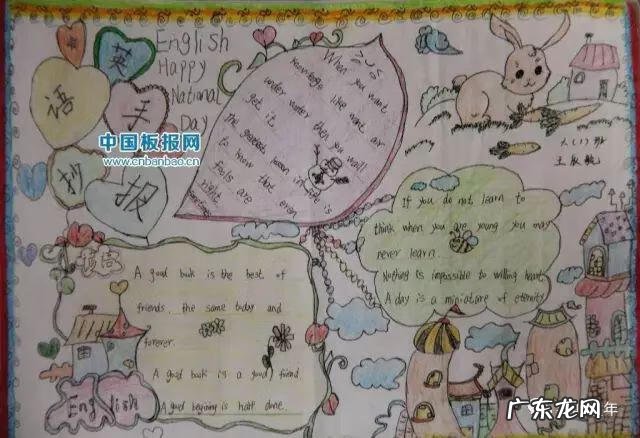 英
语
手
抄
报
English
Happy
National
Day
中国板报网
www.cnbanbao.cn
When you want
knowledge like want air
under water then you will
get it.
The greatest lesson in life is
to know that even
fools are
right
sometimes
If you do not learn to
think when you are young you may
never learn.
Nothing is impossible to willing heart
A day is a miniature of eternity
A good book is the best of
friends, the same today and
forever.
A good book is a good friend.
A good beginning is half done.
English
广东龙网
年